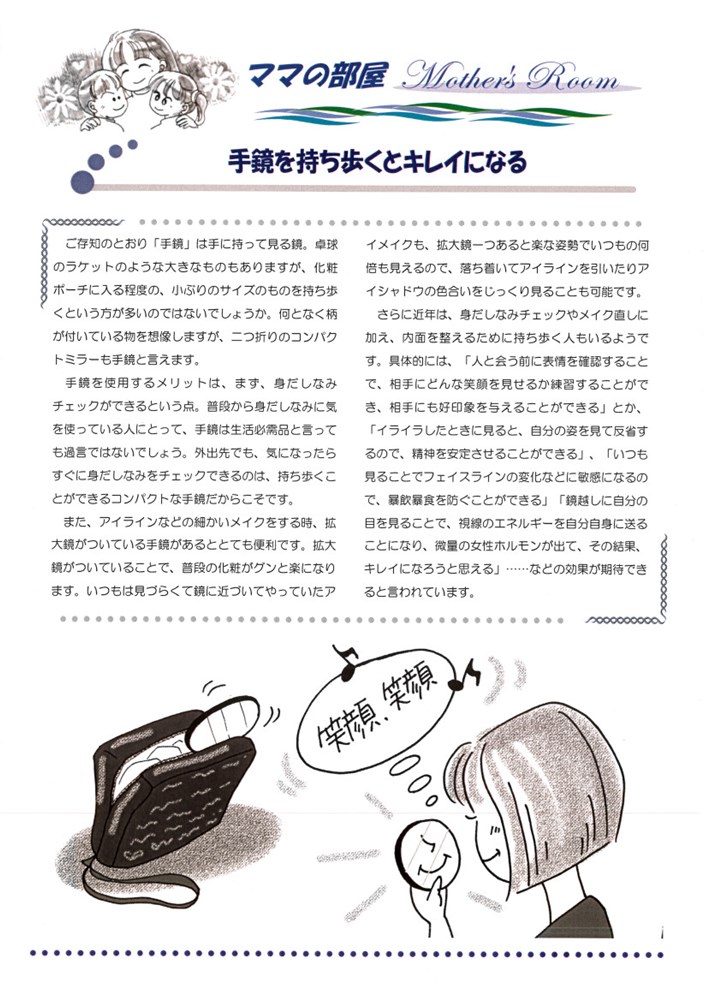 ママの部屋 Mother's Room
手鏡を持ち歩くとキレイになる
ご存知のとおり「手鏡」は手に持って見る鏡。卓球
のラケットのような大きなものもありますが、化粧
ポーチに入る程度の、小ぶりのサイズのものを持ち歩
くという方が多いのではないでしょうか。何となく柄
が付いている物を想像しますが、二つ折りのコンパク
トミラーも手鏡と言えます。
手鏡を使用するメリットは、まず、身だしなみ
チェックができるという点。普段から身だしなみに気
を使っている人にとって、手鏡は生活必需品と言って
も過言ではないでしょう。外出先でも、気になったら
すぐに身だしなみをチェックできるのは、持ち歩くこ
とができるコンパクトな手鏡だからこそです。
また、アイラインなどの細かいメイクをする時、拡
大鏡がついている手鏡があるととても便利です。拡大
鏡がついていることで、普段の化粧がグンと楽になり
ます。いつもは見づらくて鏡に近づいてやっていたア
イメイクも、拡大鏡一つあると楽な姿勢でいつもの何
倍も見えるので、落ち着いてアイラインを引いたりア
イシャドウの色合いをじっくり見ることも可能です。
さらに近年は、身だしなみチェックやメイク直しに
加え、内面を整えるために持ち歩く人もいるようで
す。具体的には、「人と会う前に表情を確認すること
で、相手にどんな笑顔を見せるか練習することがで
き、相手にも好印象を与えることができる」とか、
「イライラしたときに見ると、自分の姿を見て反省す
るので、精神を安定させることができる」、「いつも
見ることでフェイスラインの変化などに敏感になるの
で、暴飲暴食を防ぐことができる」「鏡越しに自分の
目を見ることで、視線のエネルギーを自分自身に送る
ことになり、微量の女性ホルモンが出て、その結果、
キレイになろうと思える」……などの効果が期待でき
ると言われています。
笑顔、笑顔